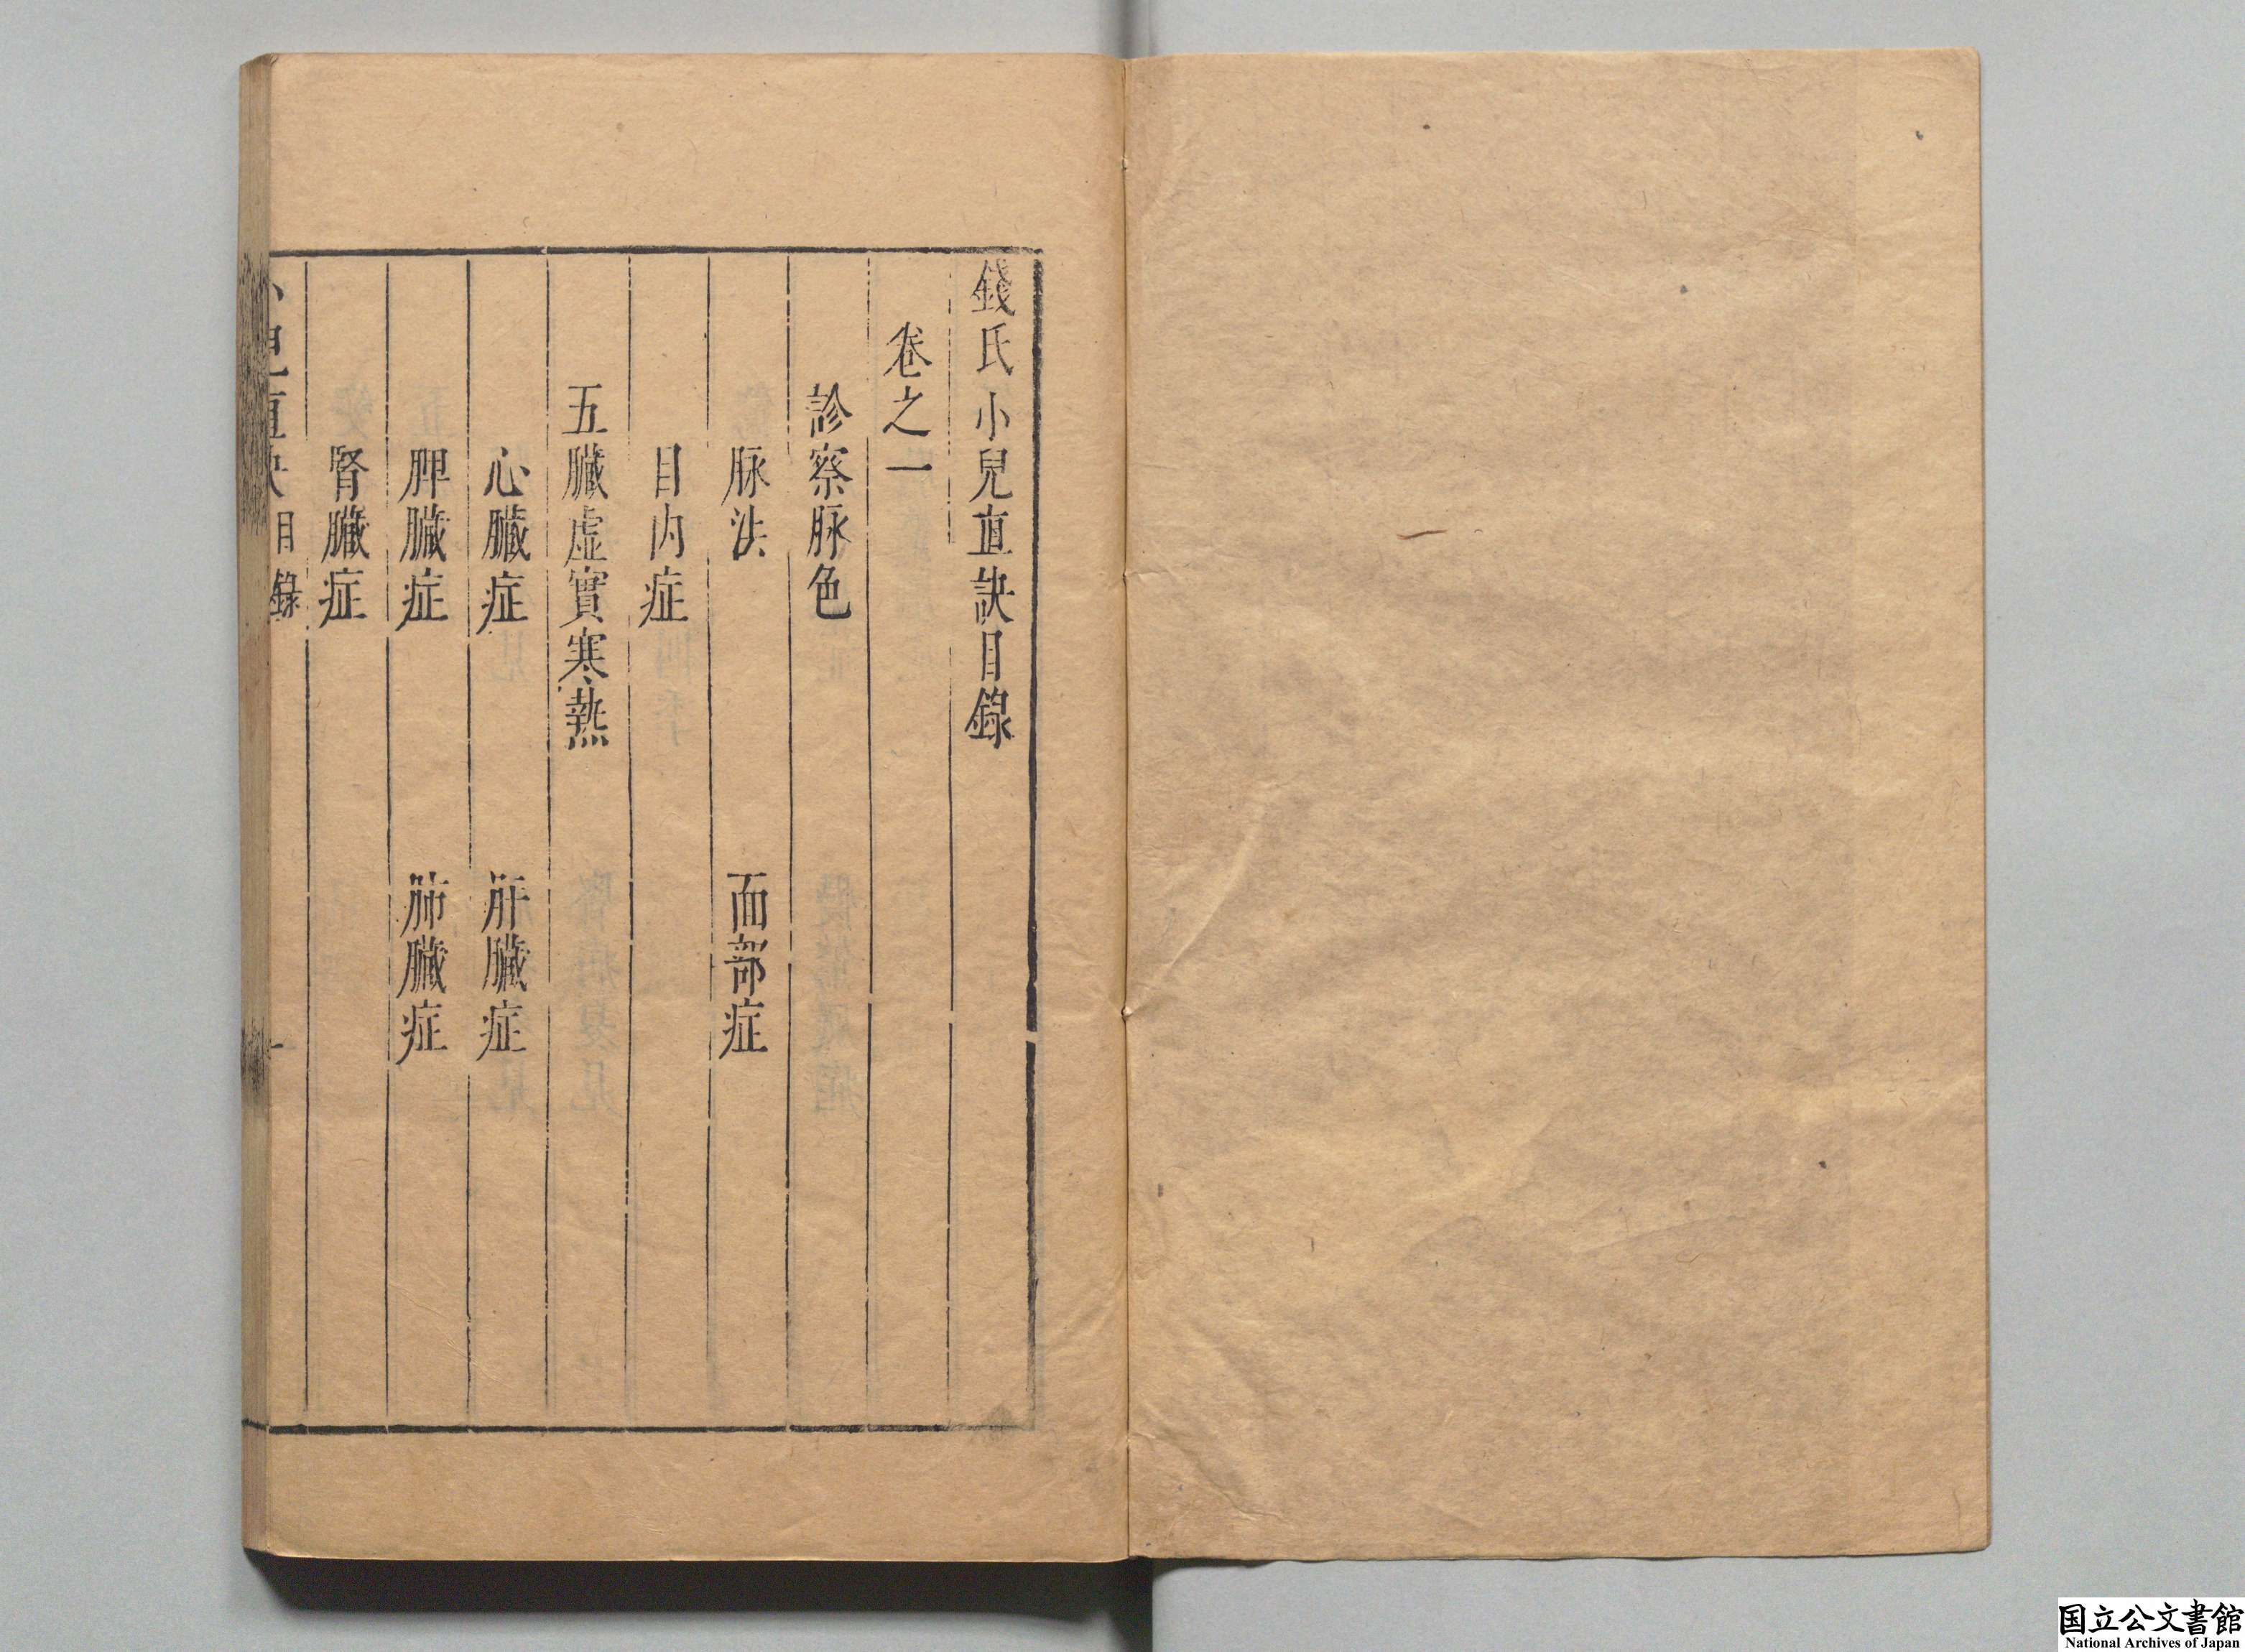 錢氏小兒直訣目錄
卷之一
診察脉色
脉法
面部症
目内症
五臟虚實寒熱
心臟症
肝臟症
脾臟症
肺臟症
腎臟症
小兒直訣
目錄
一
国立公文書館
National Archives of Japan